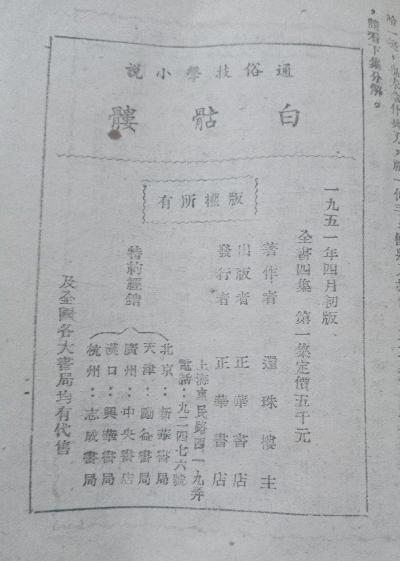 ，請看下集分解。
通俗技擊小說
白骷髏
版權所有
一九五一年四月初版
全書四集 第一集定價五千元
著作者 還珠樓主
出版者 正華書店
發行者 正華書店
上海 民路四一九弄
電話：九二四七六號
特約經銷
北京：新華書局
天津：勵益書局
廣州：中央書店
漢口：興華書局
杭州：志成書局
及全國各大書局均有代售